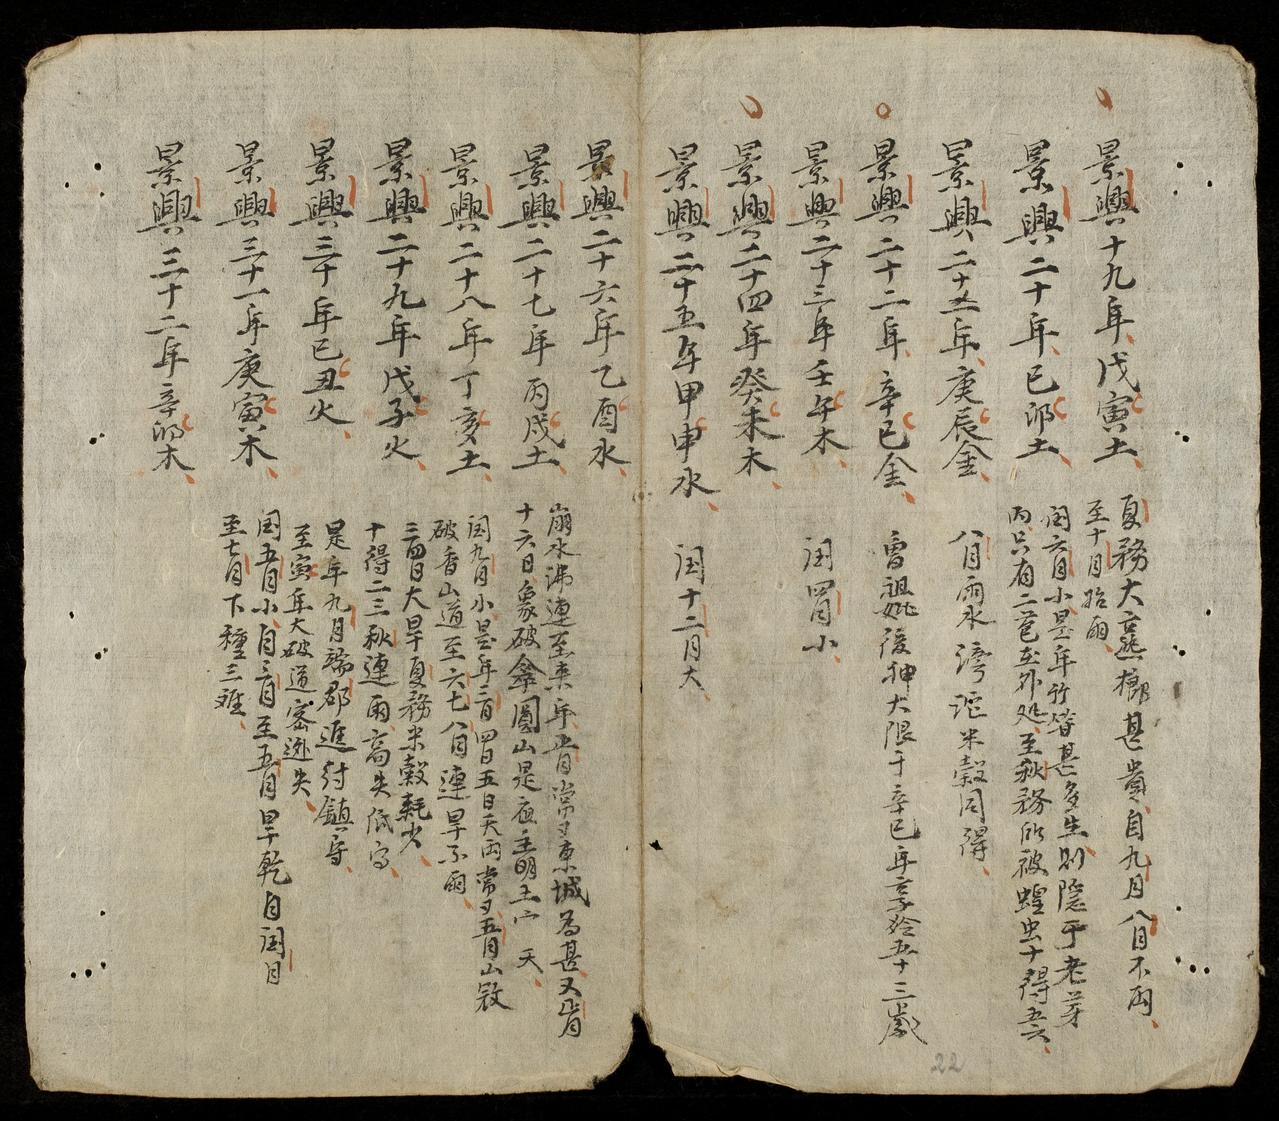 景興十九年戊寅土
夏務大蕪櫛甚貴自九月八月不雨
至十月始雨
景興二十年己卯土
閏六月小是年竹筍甚多生則隱于老芽
只有二苞至外処至秋務所被蝗虫十得五六
景興二十一年庚辰金
八月雨水灣沱米穀同得
景興二十二年辛巳金
曾祖妣後神大限于辛巳年享齡五十三歲
景興二十三年壬午木
閏四月小
景興二十四年癸未木
景興二十五年甲申水
閏十二月大
景興二十六年乙酉水
崩水沸連至來年正月常又東城為甚又正月
景興二十七年丙戌土
十六日象破傘圓山是夜主明王 天
景興二十八年丁亥土
閏九月小是年二月四日五日天雨常又五月山
破香山道至六七八月連旱不雨
景興二十九年戊子火
三四月大旱夏務米穀耗少
十得二三秋連雨高失低守
景興三十年己丑火
是年九月端郡進討鎮寧
至寅年大破道密逊失
景興三十一年庚寅木
閏五月小自三月至五月旱乾自閏月
至七月下種三难
景興三十二年辛卯木
22